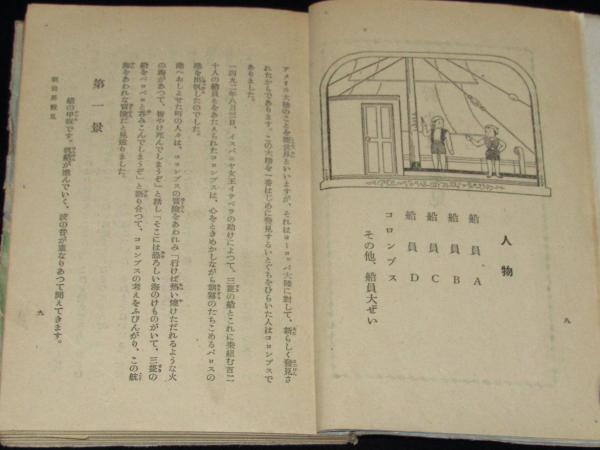 人物
船員 A
船員 B
船員 C
船員 D
コロンブス
その他、船員大ぜい
九
アメリカ大陸のことを新世界といいますが、それはヨーロッパ大陸に対して、新らしく発見さ
れたからであります。この大陸を一番はじめに発見するいとぐちをひらいた人はコロンブスで
ありました。
一四九二年八月三日、イスパニヤ女王イサベラの助けによつて、三艘の船とこれに乗組む百二
十人の船員とをあたえられたコロンブスは、心をときめかしながら朝霧のたちこめるパロスの
港を出帆したのでした。
港へおしよせた町の人々は、コロンブスの冒険をあわれみ「行けば熱い焼けただれるような火
の海があつて、皆やけ死んでしまうぞ」と話し「そこには恐ろしい海のけものがいて、三艘の
船をペロペロと呑みこんでしまうぞ」と語り合つて、コロンブスの考えをふびんがり、この航
海をあわれな冒険だと見送りました。
第一景
船の甲板です。帆船が進んでいく、波の音が重なりあつて聞えてきます。
新世界発見
九